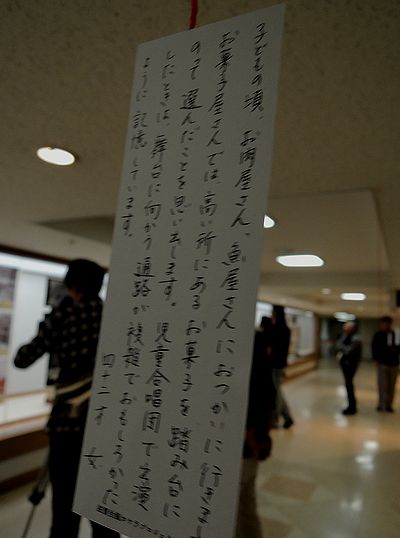 こどもの頃、お肉屋さん、魚屋さんにおつかいに行ったり
お菓子屋さんでは、高い所にあるお菓子を踏み台に
のって選んだことを思い出します。児童合唱団で出演
したときは、舞台に向かう通路が複雑でおもしろかった
ように記憶しています。
四十二才 女